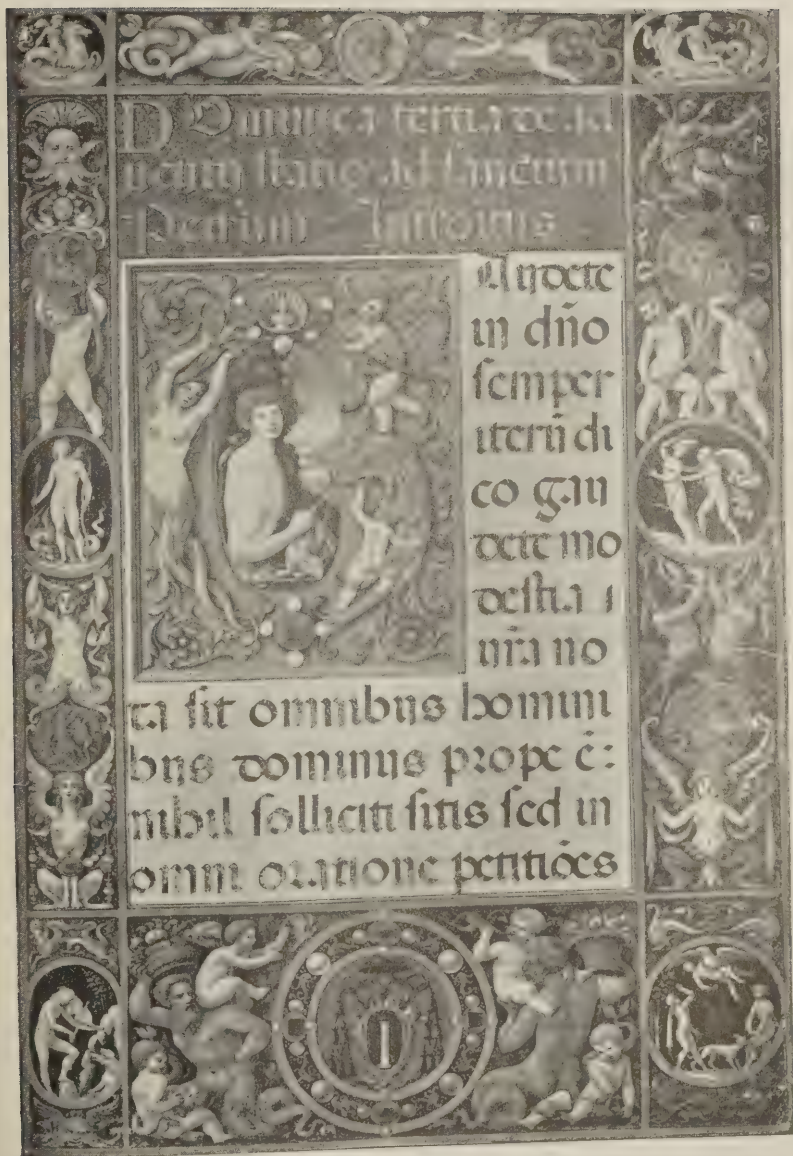 DOminica tertia de ad
uentu statio ad sanctum
Petrum Introitus
Audete
in dño
semper
iterũ di
co gau
dete mo
destia
ura no
ta sit omnibus homini
bus dominus prope ẽ:
nihil solliciti sitis sed in
omni oratione petitiões